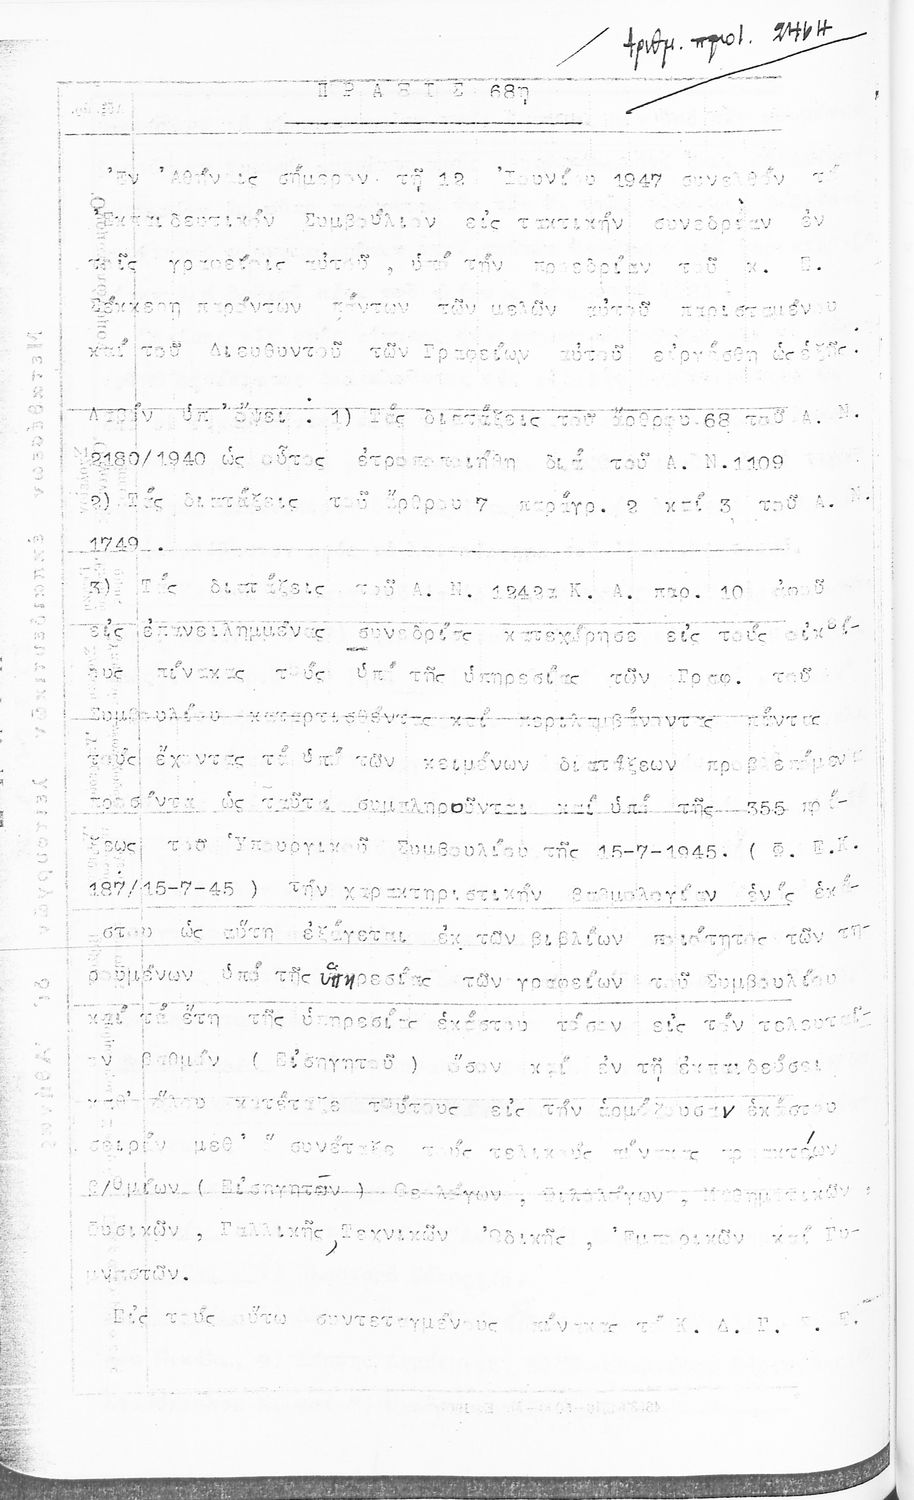 Ἀριθμ. πρωτ. 2464
Π Ρ Α Ξ Ι Σ 68η
Ἐν Ἀθήναις σήμερον τῇ 12 Ἰουνίου 1947 συνελθόν τό
Ἐκπαιδευτικόν Συμβούλιον εἰς τακτικήν συνεδρίαν ἐν
τοῖς γραφείοις αὐτοῦ , ὑπό τήν προεδρίαν τοῦ κ.
παρόντων πάντων τῶν μελῶν αὐτοῦ παρισταμένου
καί τοῦ Διευθυντοῦ τῶν Γραφείων αὐτοῦ εἰργάσθη ὡς ἑξῆς.
Λαβόν ὑπ' ὄψει : 1) Τάς διατάξεις τοῦ ἄρθρου 68 τοῦ Α. Ν.
2180/1940 ὡς οὗτος ἐτροποποιήθη διά τοῦ Α. Ν. 1109
2) Τάς διατάξεις τοῦ ἄρθρου 7 παράγρ. 2 καί 3 τοῦ Α. Ν.
1749 .
3) Τάς διατάξεις τοῦ Α. Ν. 1242 Κ. Α. παρ. 10 ἀφοῦ
εἰς ἐπανειλημμένας συνεδρίας κατεχώρησε εἰς τούς οἰκεί-
ους πίνακας τούς ὑπό τῆς ὑπηρεσίας τῶν Γραφ. τοῦ
Συμβουλίου καταρτισθέντας καί περιλαμβάνοντας πάντας
τούς ἔχοντας τά ὑπό τῶν κειμένων διατάξεων προβλεπόμενα
προσόντα ὡς ταῦτα συμπληροῦνται καί ὑπό τῆς 355 πρά-
ξεως τοῦ Ὑπουργικοῦ Συμβουλίου τῆς 15-7-1945. ( Φ. Ε.Κ.
187/15-7-45 ) τήν χαρακτηριστικήν βαθμολογίαν ἑνός ἑκά-
στου ὡς αὕτη ἐξάγεται ἐκ τῶν βιβλίων ποιότητος τῶν τη-
ρουμένων ὑπό τῆς ὑπηρεσίας τῶν γραφείων τοῦ Συμβουλίου
καί τά ἔτη τῆς ὑπηρεσίας ἑκάστου τόσον εἰς τόν τελευταῖ-
ον βαθμόν ( Εἰσηγητοῦ ) ὅσον καί ἐν τῇ ἐκπαιδεύσει
καθ' ὅλου κατέταξε τούτους εἰς τήν ἁρμόζουσαν ἑκάστου
σειράν μεθ' ὅ συνέταξε τούς τελικούς πίνακας προακτέων
β/θμίων ( Εἰσηγητῶν ) Θεολόγων , Φιλολόγων , Μαθηματικῶν ,
Φυσικῶν , Γαλλικῆς, Τεχνικῶν Ὠδικῆς , Ἐμπορικῶν καί Γυ-
μναστῶν.
Εἰς τούς οὕτω συντεταγμένους πίνακας τό Κ. Δ. Γ. Σ. Ε.